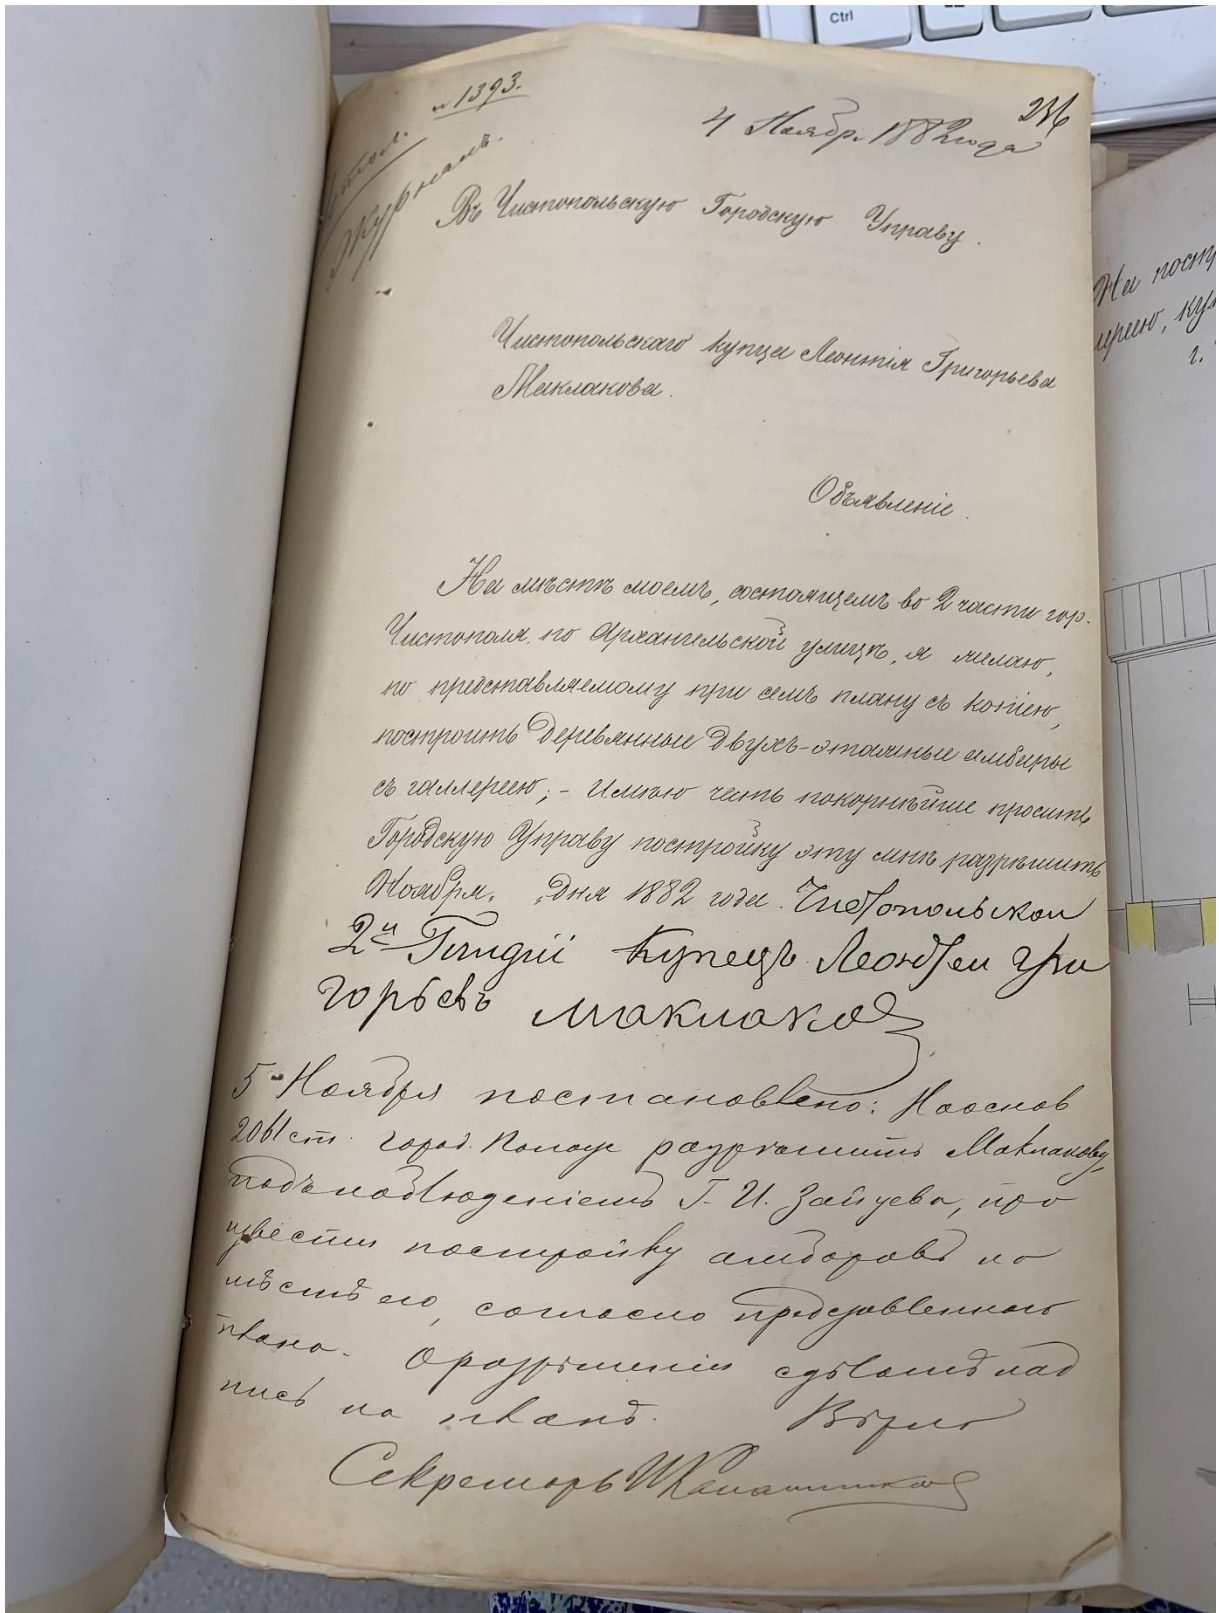 Ctrl
№ 1393.
236
4 Ноябр. 1882 года
Журналъ.
Въ Чистопольскую Городскую Управу.
Чистопольскаго купца Леонтія Григорьева
Маклакова.
Объявленіе.
На мѣстѣ моемъ, состоящемъ во 2 части гор.
Чистополя, по Архангельской улицѣ, я желаю,
по представляемому при семъ плану съ копіею,
построить деревянные двухъ-этажные амбары
съ галлереею; - Имѣю честь покорнѣйше просить
Городскую Управу постройку эту мнѣ разрѣшить
Ноября, дня 1882 года. Чистопольскои
2й Гилдіи Купецъ Леонтеи Гри
горьевъ Маклаковъ
5 Ноября постановлено: На основ
ст. город. Полож разрѣшить Маклакову,
подъ наблюденіемъ Г. И. Зайцева, про
извести постройку амбаровъ на
мѣстѣ его, согласно представленнаго
плана. О разрѣшеніи сдѣлать над
пись на планѣ. Вѣрно
Секретарь
На постр
лереею, куп
г.